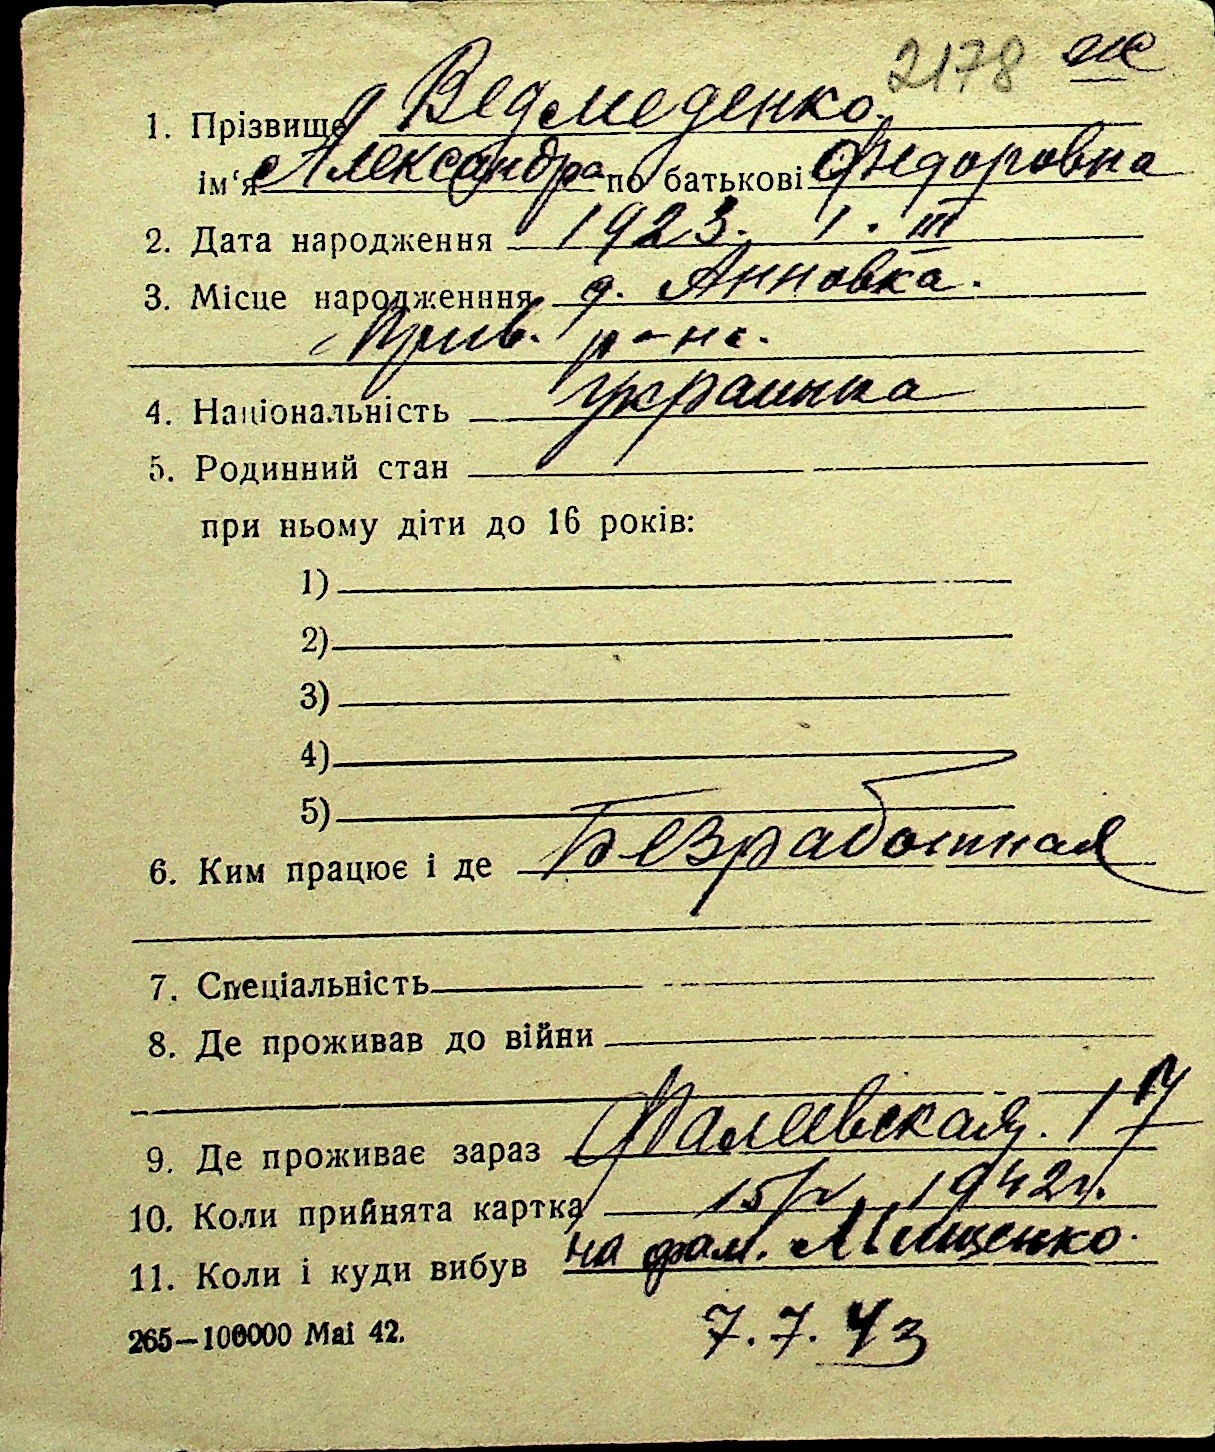 2178 же
1. Прізвище Ведмеденко.
ім'я Александра по батькові Федоровна
2. Дата народження 1923. 1. III
3. Місце народженння д. Анновка.
р-на.
4. Національність украинка
5. Родинний стан
при ньому діти до 16 років:
1)
2)
3)
4)
5)
6. Ким працює і де Безработная
7. Спеціальність
8. Де проживав до війни
9. Де проживає зараз 17
10. Коли прийнята картка 1942г.
11. Коли і куди вибув на фам. Мищенко.
265—100000 Mai 42. 7.7.43